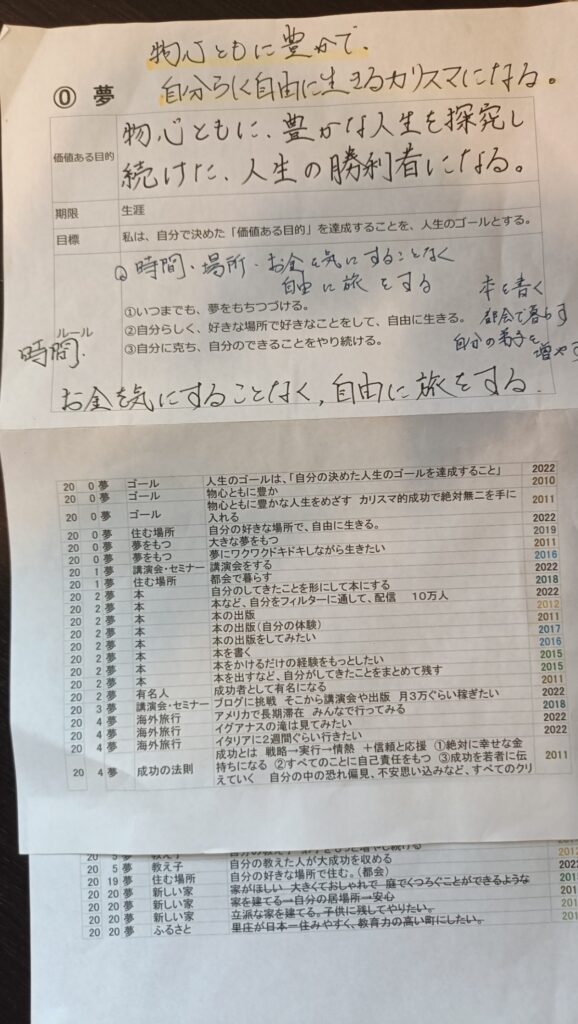 物心ともに豊かで、
自分らしく自由に生きるカリスマになる。
⓪ 夢
価値ある目的
物心ともに、豊かな人生を探究し
続けた、人生の勝利者になる。
期限 生涯
目標 私は、自分で決めた「価値ある目的」を達成することを、人生のゴールとする。
時間・場所・お金を気にすることなく
自由に旅をする
本を書く
都会で暮らす
自分の弟子を
増やす
ルール
①いつまでも、夢をもちつづける。
②自分らしく、好きな場所で好きなことをして、自由に生きる。
③自分に克ち、自分のできることをやり続ける。
時間・
お金を気にすることなく、自由に旅をする。
20 0 夢 ゴール 人生のゴールは、「自分の決めた人生のゴールを達成すること」 2022
20 0 夢 ゴール 物心ともに豊か 2010
20 0 夢 ゴール 物心ともに豊かな人生をめざす カリスマ的成功で絶対無二を手に
入れる 2011
20 0 夢 住む場所 自分の好きな場所で、自由に生きる。 2022
20 0 夢 夢をもつ 大きな夢をもつ 2019
20 0 夢 夢をもつ 夢にワクワクドキドキしながら生きたい 2011
20 1 夢 講演会・セミナー 講演会をする 2016
20 1 夢 住む場所 都会で暮らす 2022
20 2 夢 本 自分のしてきたことを形にして本にする 2018
20 2 夢 本 本など、自分をフィルターに通して、配信 10万人 2022
20 2 夢 本 本の出版 2012
20 2 夢 本 本の出版(自分の体験) 2011
20 2 夢 本 本の出版をしてみたい 2017
20 2 夢 本 本を書く 2016
20 2 夢 本 本をかけるだけの経験をもっとしたい 2015
20 2 夢 本 本を出すなど、自分がしてきたことをまとめて残す 2015
20 2 夢 有名人 成功者として有名になる 2011
20 3 夢 講演会・セミナー ブログに挑戦 そこから講演会や出版 月3万ぐらい稼ぎたい 2022
20 4 夢 海外旅行 アメリカで長期滞在 みんなで行ってみる 2018
20 4 夢 海外旅行 イグアナスの滝は見てみたい 2022
20 4 夢 海外旅行 イタリアに2週間ぐらい行きたい 2022
20 4 夢 成功の法則 成功とは 戦略→実行→情熱 +信頼と応援 ①絶対に幸せな金
持ちになる ②すべてのことに自己責任をもつ ③成功を若者に伝
えていく 自分の中の恐れ偏見、不安思い込みなど、すべてのクリ 2011
20 5 夢 教え子
20 5 夢 教え子 自分の教えた人が大成功を収める
20 19 夢 住む場所 自分の好きな場所で住む。(都会)
20 20 夢 新しい家 家がほしい 大きくておしゃれで 庭でくつろぐことができるような
20 20 夢 新しい家 家を建てる→自分の居場所→安心
20 20 夢 新しい家 立派な家を建てる。子供に残してやりたい。
20 20 夢 ふるさと 里庄が日本一住みやすく、教育力の高い町にしたい。